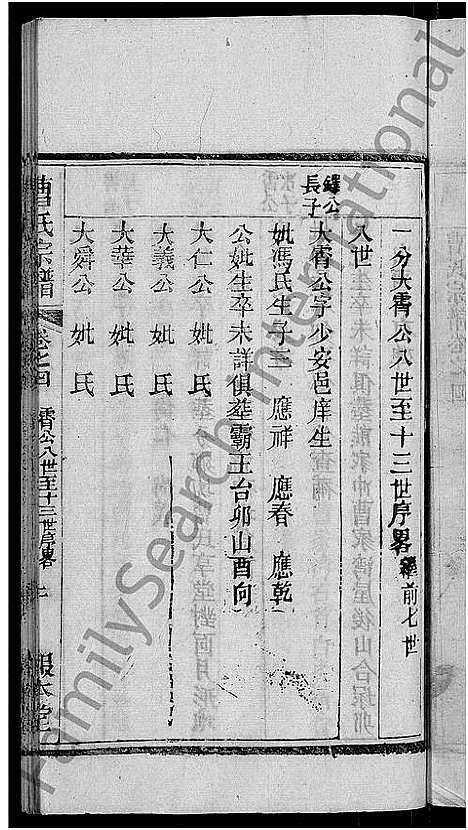 一分大霄公八世至十三世序畧繼前七世
八世
鐸公長子
大霄公字少安邑庠生
妣馮氏生子三 應祥 應春 應乾
公妣生卒未詳俱塟霸王台卯山酉向
大仁公 妣 氏
大義公 妣 氏
大華公 妣 氏
大舜公 妣 氏
曹氏宗譜 卷之四 霄公八世至十三世序畧 報本堂
FamilySearch International